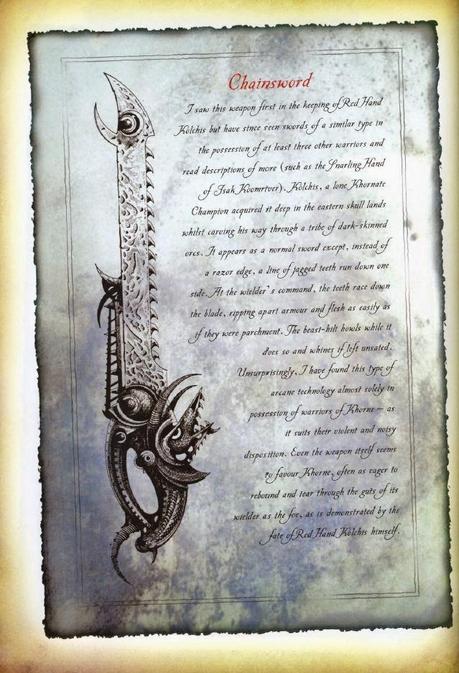 Chainsword
I saw this weapon first in the keeping of Red Hand
Kolchis but have since seen swords of a similar type in
the possession of at least three other warriors and
read descriptions of more (such as the Snarling Hand
of Isak Koomrtver). Kolchis, a lone Khornate
Champion acquired it deep in the eastern skull lands
whilst carving his way through a tribe of dark-skinned
orcs. It appears as a normal sword except, instead of
a razor edge, a line of jagged teeth run down one
side. At the wielder's command, the teeth race down
the blade, ripping apart armour and flesh as easily as
if they were parchment. The beast-hilt howls while it
does so and whines if left unsated.
Unsurprisingly, I have found this type of
arcane technology almost solely in
possession of warriors of Khorne — as
it suits their violent and noisy
disposition. Even the weapon itself seems
to favour Khorne, often as eager to
rebound and tear through the guts of its
wielder as the foe, as is demonstrated by the
fate of Red Hand Kolchis himself.